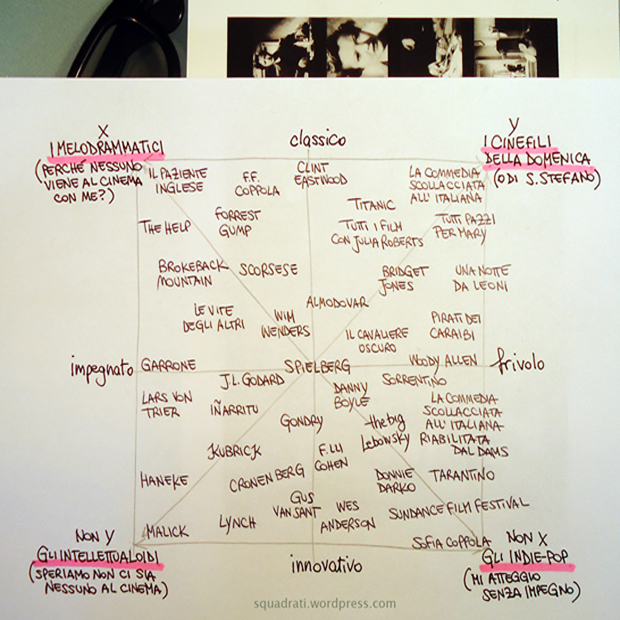 X
I MELODRAMMATICI
(PERCHÉ NESSUNO
VIENE AL CINEMA
CON ME?)
classico
Y
I CINEFILI
DELLA DOMENICA
(O DI S. STEFANO)
IL PAZIENTE
INGLESE
F.F.
COPPOLA
CLINT
EASTWOOD
LA COMMEDIA
SCOLLACCIATA
ALL'ITALIANA
TITANIC
THE HELP
FORREST
GUMP
TUTTI I FILM
CON JULIA ROBERTS
TUTTI PAZZI
PER MARY
BROKEBACK
MOUNTAIN
SCORSESE
BRIDGET
JONES
UNA NOTTE
DA LEONI
ALMODOVAR
LE VITE
DEGLI ALTRI
WIM
WENDERS
IL CAVALIERE
OSCURO
PIRATI DEI
CARAIBI
impegnato
GARRONE
SPIELBERG
WOODY ALLEN
frivolo
J.L. GODARD
SORRENTINO
LARS VON
TRIER
IÑARRITU
DANNY
BOYLE
LA COMMEDIA
SCOLLACCIATA
ALL'ITALIANA
RIABILITATA
DAL DAMS
GONDRY
the big
Lebowsky
KUBRICK
F.LLI
COHEN
HANEKE
CRONENBERG
DONNIE
DARKO
TARANTINO
GUS
VAN SANT
WES
ANDERSON
SUNDANCE FILM FESTIVAL
MALICK
LYNCH
SOFIA COPPOLA
NON Y
GLI INTELLETTUALOIDI
(SPERIAMO NON CI SIA
NESSUNO AL CINEMA)
innovativo
NON X
GLI INDIE-POP
(MI ATTEGGIO
SENZA IMPEGNO)
squadrati.wordpress.com